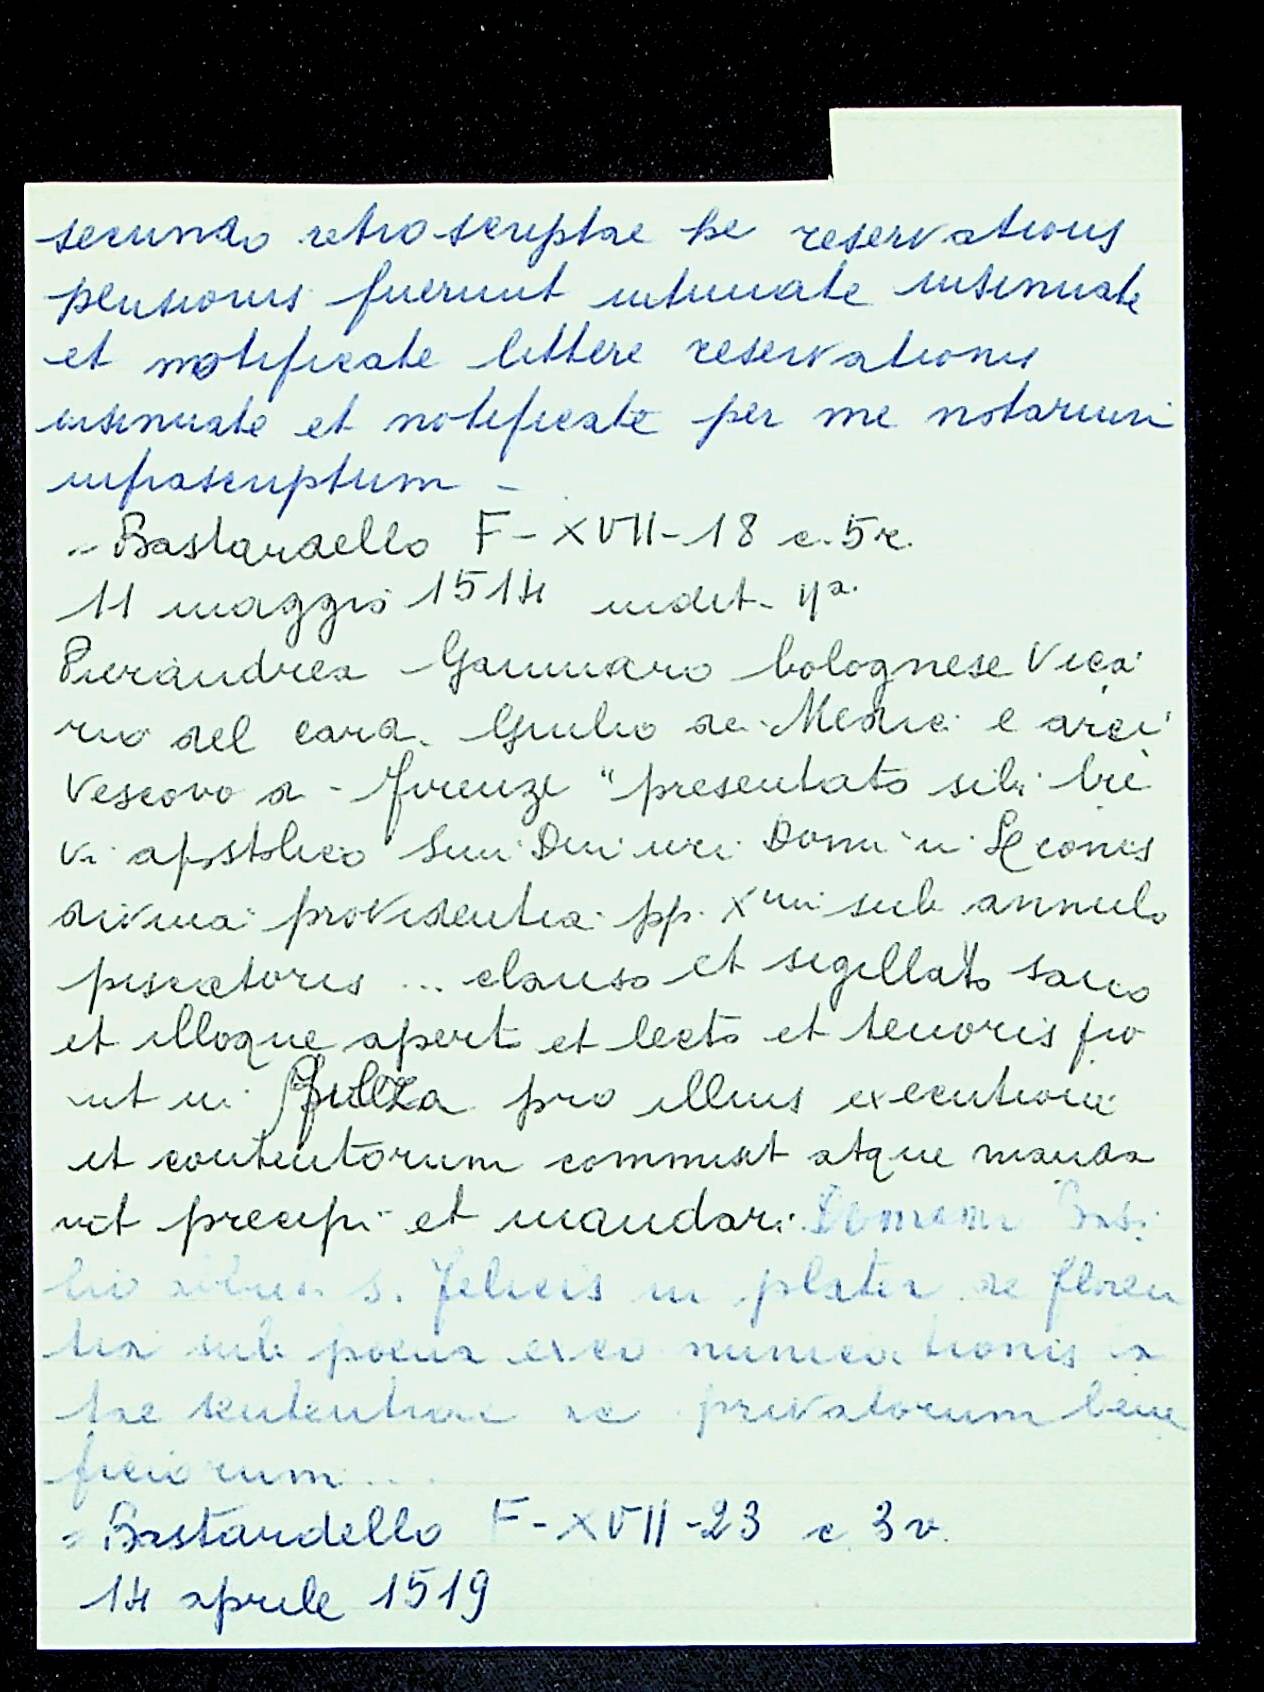 secundo retroscriptae he reservations
pensionis fuerunt intimate insinuate
et notificate littere reservationis
insinuate et notificate per me notarium
infrascriptum -
- Bastardello F-XVII-18 c. 5r.
11 maggio 1514 indit.
Pierandrea Gammaro bolognese Vica
rio del card. Giulio de Medici e arci
Vescovo di Firenze "presentato sibi bre
vi apostolico Smi Dni nri Domini Leonis
divina providentia pp. Xmi sub annulo
piscatoris ... clauso et sigillato sano
et illoque aperto et lecto et tenoris pro
ut in filza pro illius executione
et contentorum commisit atque manda
vit precipi et mandari
S. Felicis in platea de Floren
tia sub poena excomunicationis la
tae sententiae ac privatorum bene
ficiorum...
- Bastardello F-XVII-23 c. 3v.
14 aprile 1519